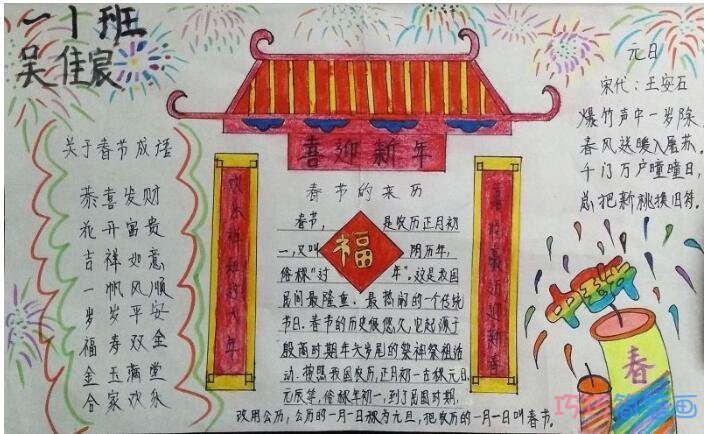 一1班
吴佳宸
关于春节成语
恭喜发财
花开富贵
吉祥如意
一帆风顺
岁岁平安
福寿双全
金玉满堂
合家欢乐
喜迎新年
春节的来历
春节， 是农历正月初
一，又叫 阴历年，
俗称“过 年”。这是我国
民间最隆重、最热闹的一个传统
节日。春节的历史很悠久，它起源于
殷商时期年头岁尾的祭神祭祖活
动。按照我国农历，正月初一古称元日、
元辰等，俗称年初一，到了民国时期，
改用公历，公历的一月一日称为元旦，把农历的一月一日叫春节。
福
元日
宋代：王安石
爆竹声中一岁除，
春风送暖入屠苏。
千门万户曈曈日，
总把新桃换旧符。
春